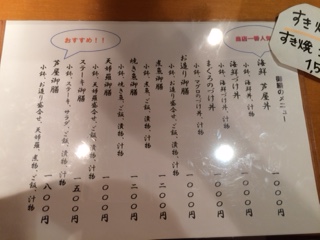 すき焼
すき焼
1,5
当店一番人気
おすすめ！！
御膳のメニュー
海鮮 芦屋丼
小鉢、海鮮づけ丼、汁物
一〇〇〇円
海鮮づけ丼
一〇〇〇円
まぐろのづけ丼
小鉢、マグロのづけ丼、汁物
一〇〇〇円
お造り御膳
小鉢、お造り盛合せ、ご飯、漬物、汁物
一〇〇〇円
煮魚御膳
小鉢、煮魚、ご飯、漬物、汁物
一二〇〇円
焼き魚御膳
小鉢、焼き魚、ご飯、漬物、汁物
一二〇〇円
天婦羅御膳
小鉢、天婦羅盛合せ、ご飯、漬物、汁物
一〇〇〇円
ステーキ御膳
小鉢、ステーキ、サラダ、ご飯、漬物、汁物
一五〇〇円
芦屋御膳
小鉢、お造り盛合せ、天婦羅、煮物、ご飯、汁物
一八〇〇円